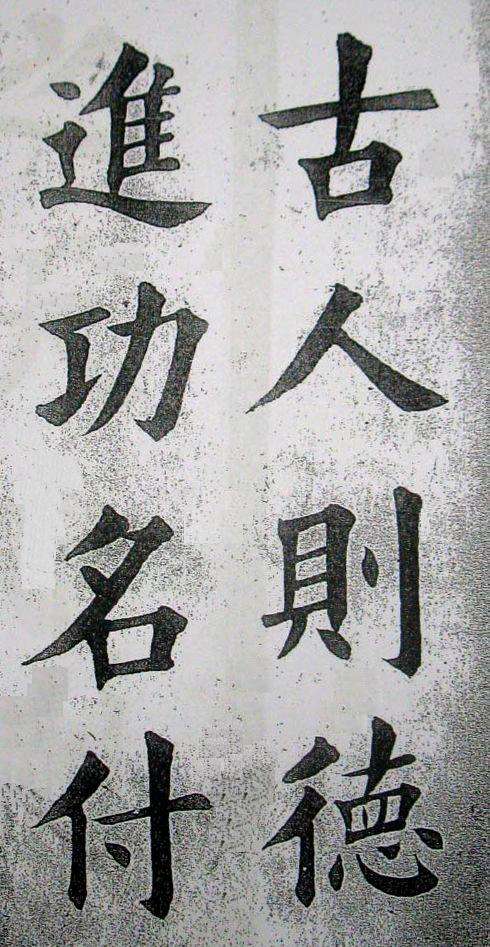 古人則德
進功名付